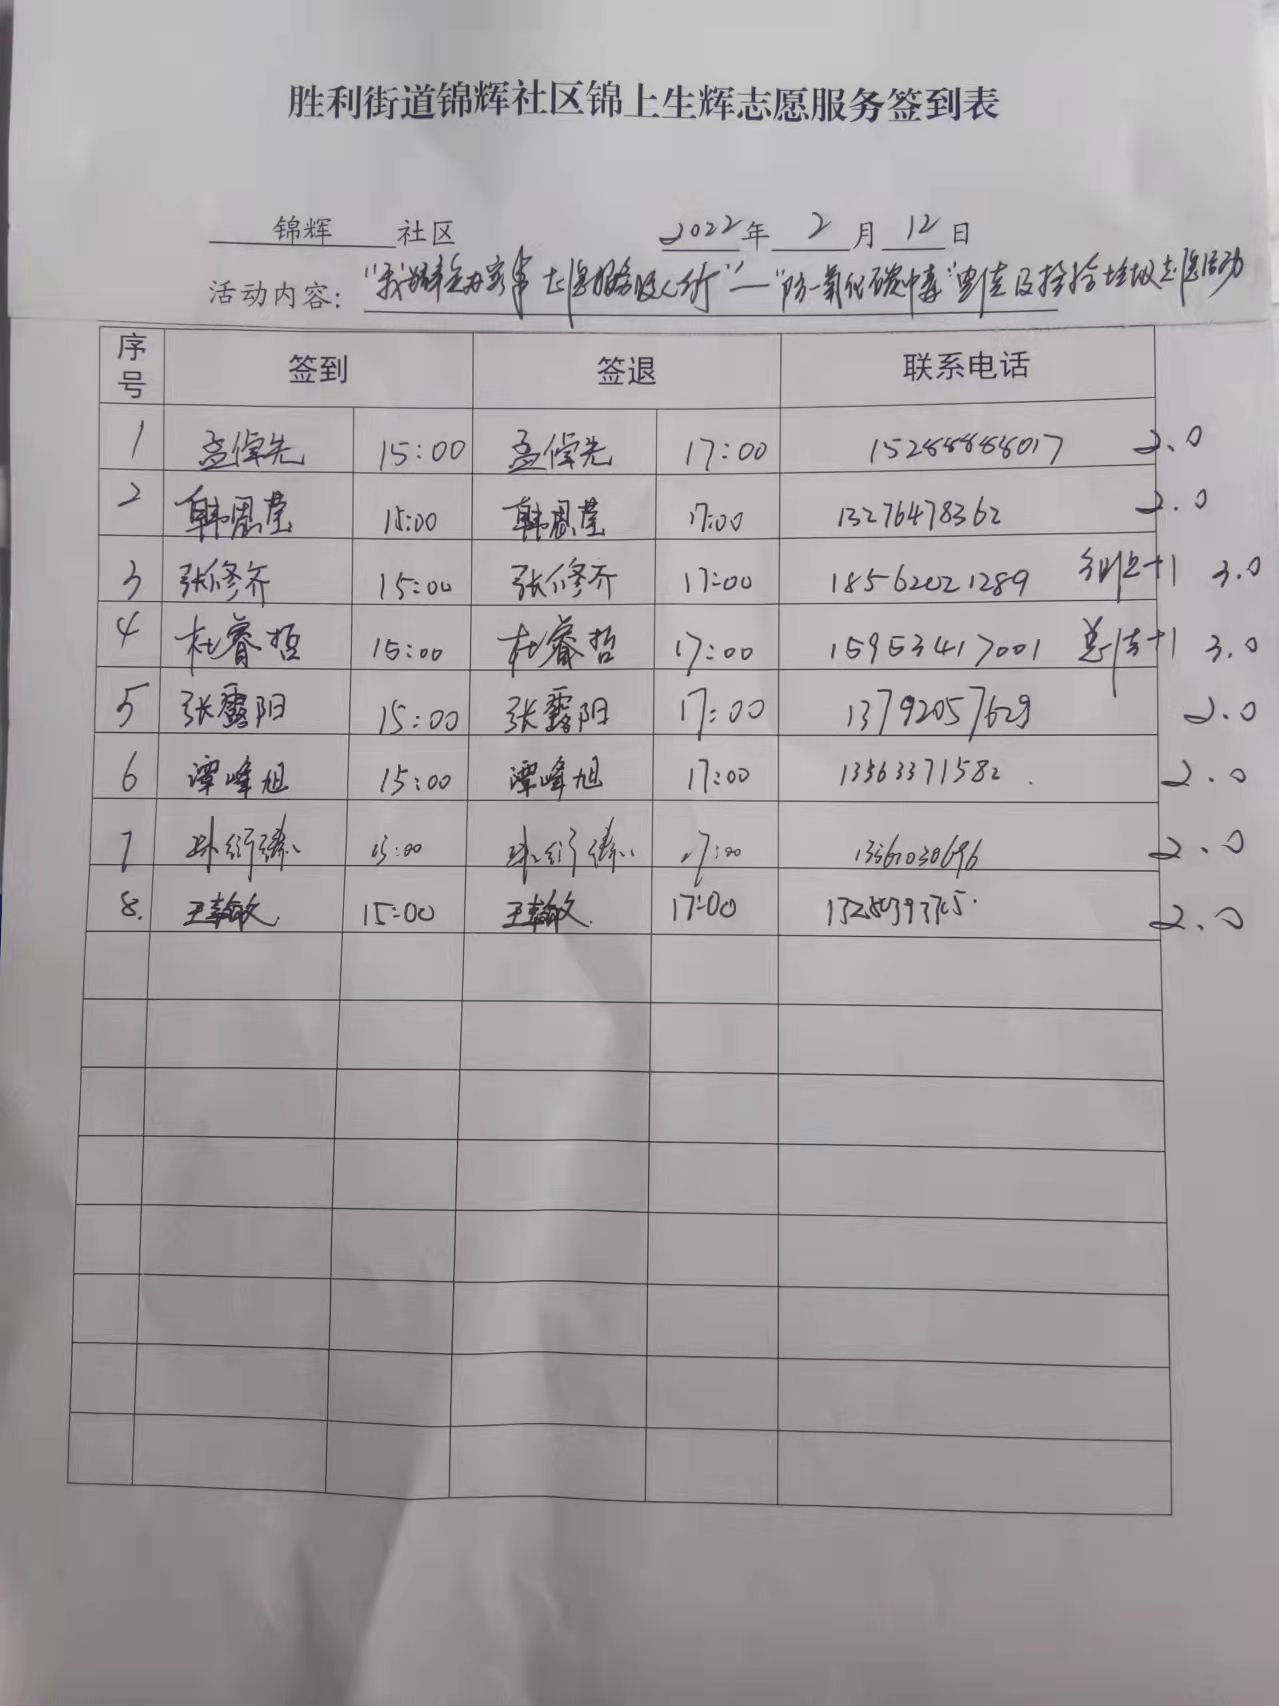 胜利街道锦辉社区锦上生辉志愿服务签到表
锦辉 社区 2022年 2 月 12 日
活动内容：“我为群众办实事 志愿服务暖人心”—“防一氧化碳中毒”宣传及捡拾垃圾志愿活动
序号 签到 签退 联系电话
1 孟倬先 15:00 孟倬先 17:00 15288888017 2.0
2 韩思莹 15:00 韩思莹 17:00 13276478362 2.0
3 张修齐 15:00 张修齐 17:00 18562021289 +1 3.0
4 杜睿哲 15:00 杜睿哲 17:00 15953417001 +1 3.0
5 张露阳 15:00 张露阳 17:00 13792057629 2.0
6 谭峰旭 15:00 谭峰旭 17:00 13563371582 2.0
7 15:00 17:00 13561030696 2.0
8. 王翰敏 15:00 王翰敏 17:00 2.0